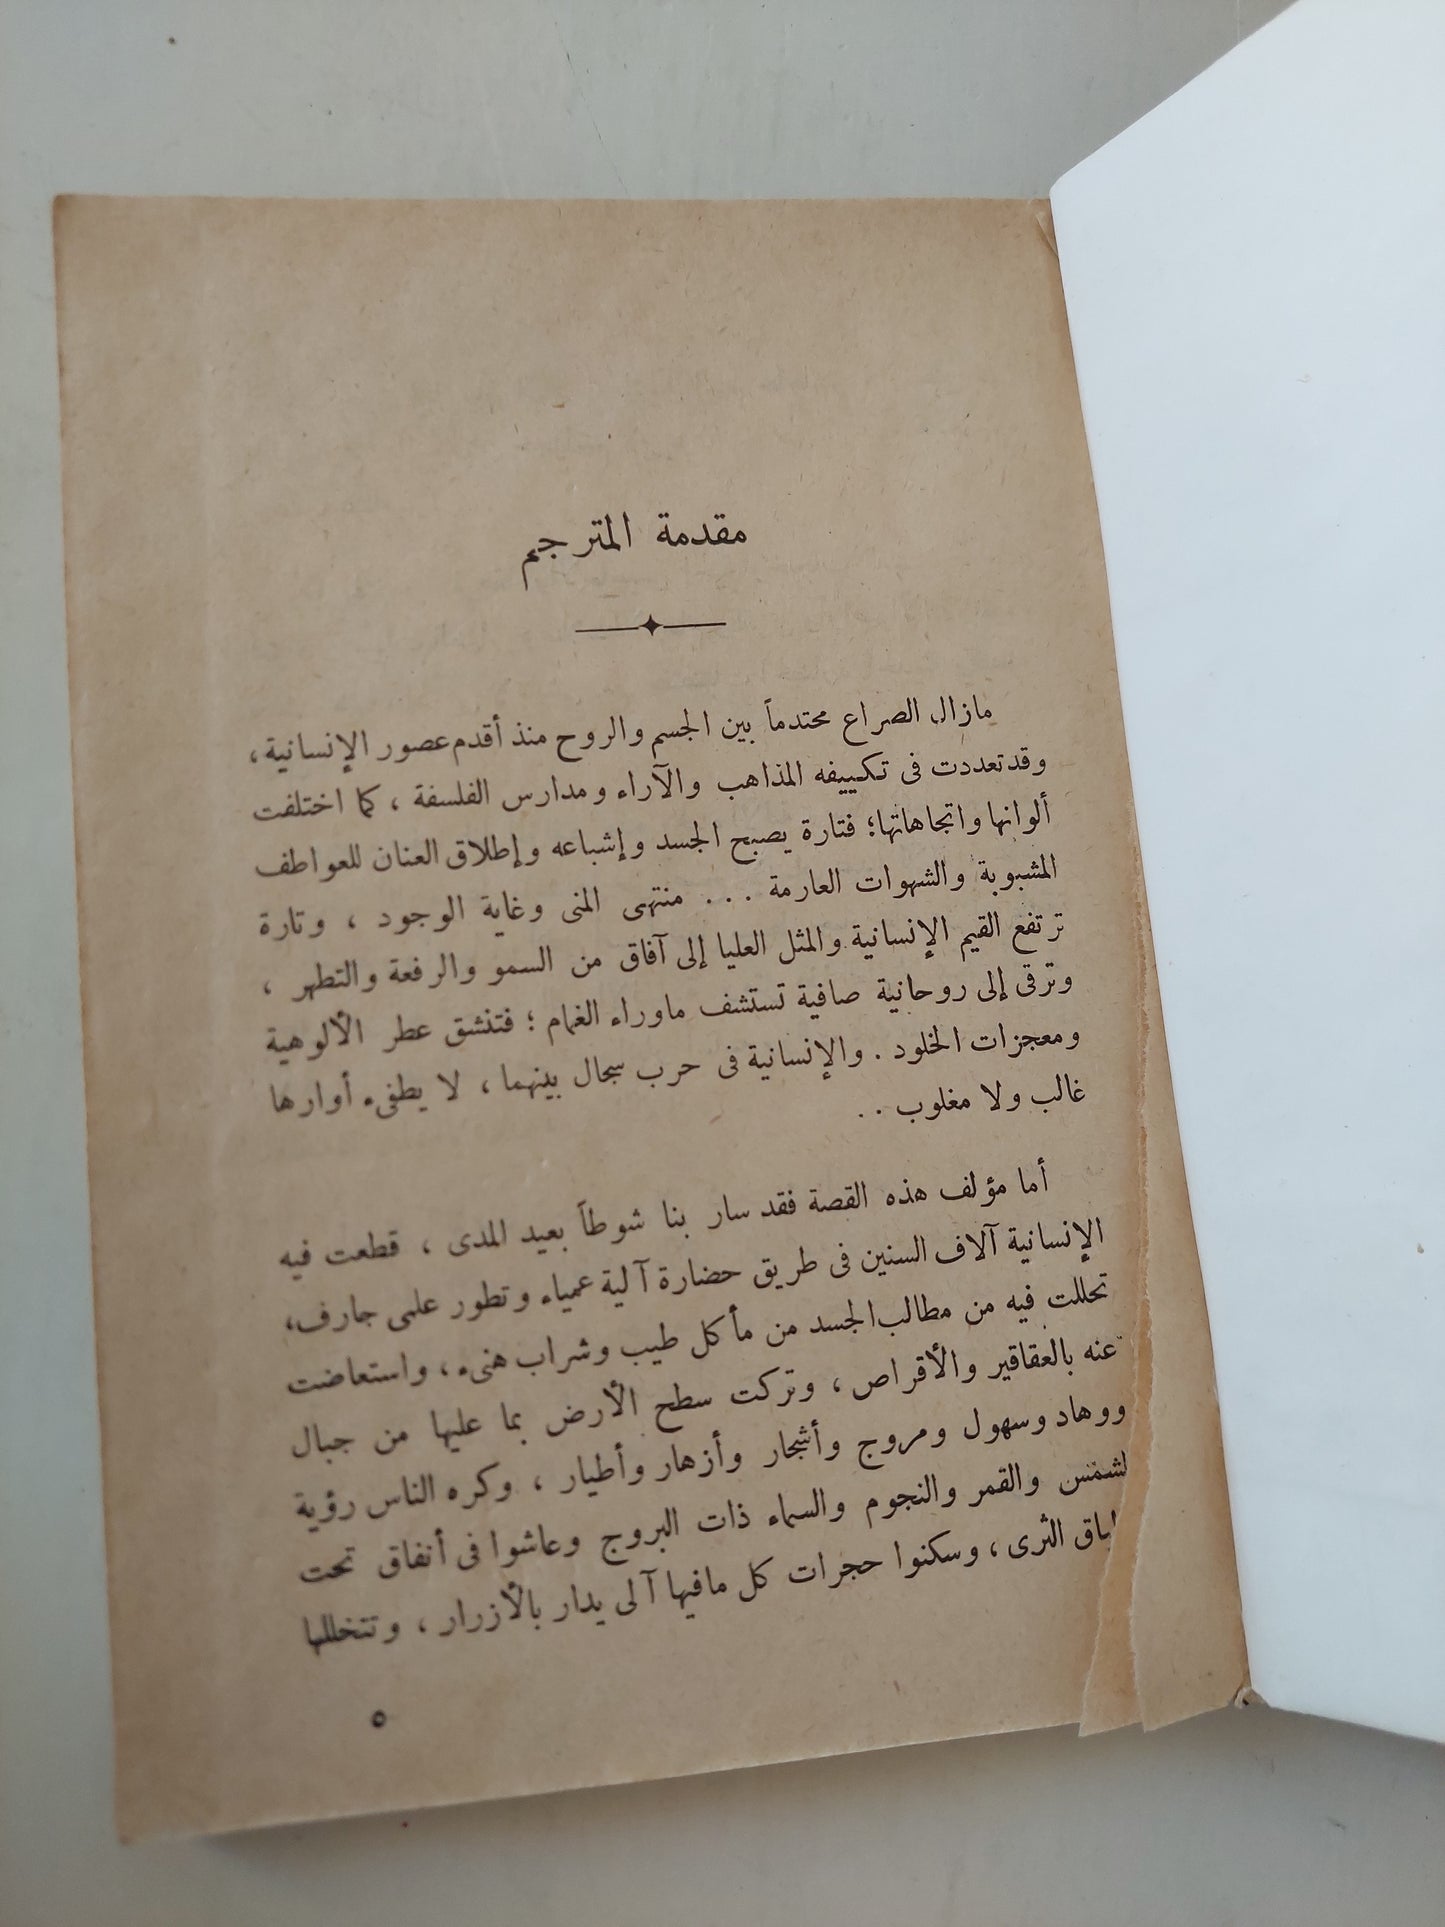 مقدمة المترجم
مازال الصراع محتدماً بين الجسم والروح منذ أقدم عصور الإنسانية ،
وقد تعددت فى تكييفه المذاهب والآراء ومدارس الفلسفة ، كما اختلفت
ألوانها واتجاهاتها؛ فتارة يصبح الجسد وإشباعه وإطلاق العنان للعواطف
المشبوبة والشهوات العارمة . . . منتهى المنى وغاية الوجود ، وتارة
ترتفع القيم الإنسانية والمثل العليا إلى آفاق من السمو والرفعة والتطهر ،
وترقى إلى روحانية صافية تستشف ماوراء الغمام ؛ فتنشق عطر الألوهية
ومعجزات الخلود . والإنسانية فى حرب سجال بينهما ، لا يطفىء أوارها
غالب ولا مغلوب . .
أما مؤلف هذه القصة فقد سار بنا شوطاً بعيد المدى ، قطعت فيه
الإنسانية آلاف السنين فى طريق حضارة آلية عمياء وتطور علمى جارف،
تحللت فيه من مطالب الجسد من مأكل طيب وشراب هنىء ، واستعاضت
عنه بالعقاقير والأقراص ، وتركت سطح الأرض بما عليها من جبال
ووهاد وسهول ومروج وأشجار وأزهار وأطيار ، وكره الناس رؤية
لشمس والقمر والنجوم والسماء ذات البروج وعاشوا فى أنفاق تحت
الثرى ، وسكنوا حجرات كل مافيها آلى يدار بالأزرار ، وتتخللها
٥